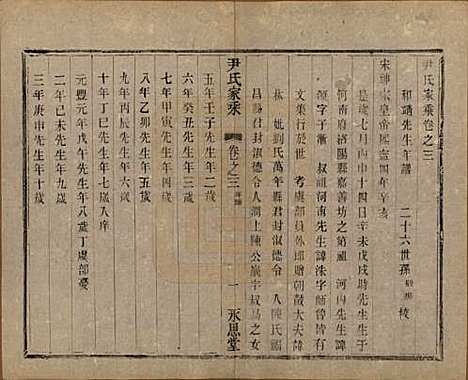 尹氏家乘卷之三
和靖先生年譜 二十六世孫 梭
宋神宗皇帝熙寧四年辛亥
是歲七月丙申十四日辛未戊戌時先生生于
河南府洛陽縣嘉善坊之第祖 河內先生諱
源字子漸 叔祖河南先生諱洙字師魯皆有
文集行於世 考虞部員外郎贈朝散大夫諱
林 妣劉氏萬年縣君封淑德令人陳氏賜
昌縣君封淑德令人潤上陳公廣字叔易之女
尹氏家乘 卷之三 年譜 一 永思堂
五年壬子先生年二歲
六年癸丑先生年三歲
七年甲寅先生年四歲
八年乙卯先生年五歲
九年丙辰先生年六歲
十年丁巳先生年七歲入庠
元豐元年戊午先生年八歲丁虞部憂
二年己未先生年九歲
三年庚申先生年十歲